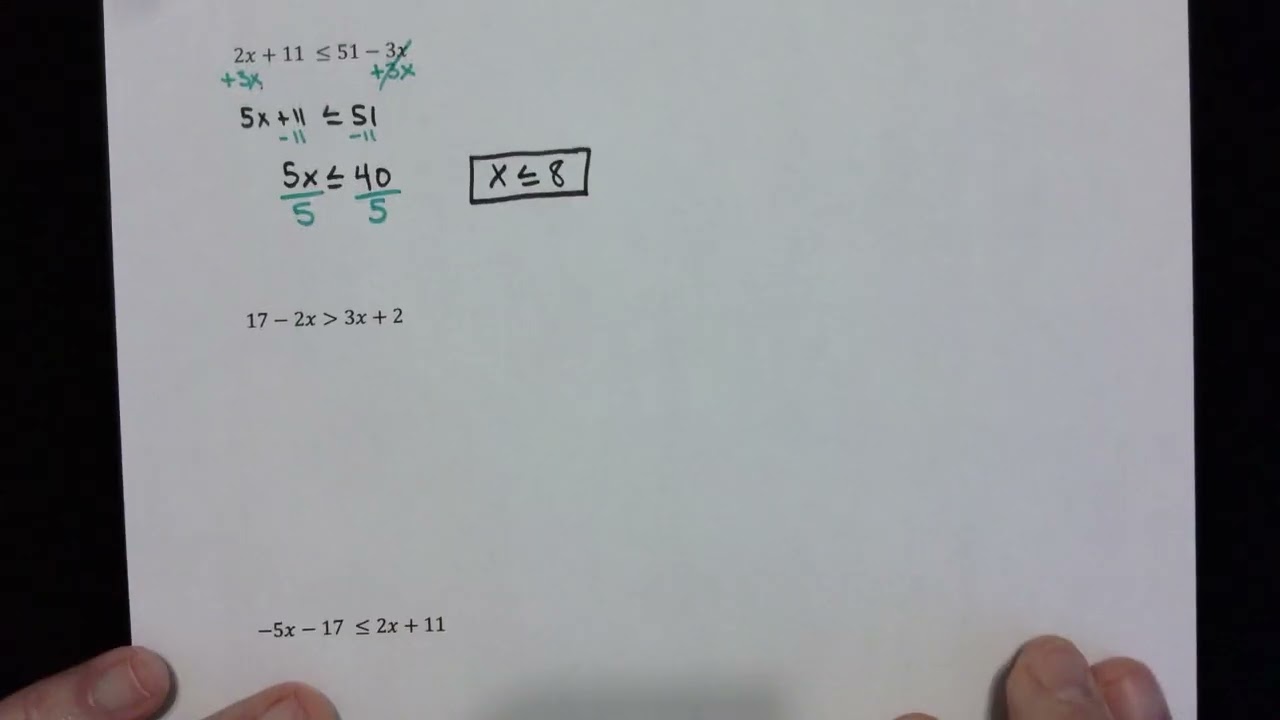 2x + 11 ≤ 51 − 3x
+3x +3x
5x + 11 ≤ 51
−11 −11
5x ≤ 40 x ≤ 8
5 5
17 − 2x > 3x + 2
−5x − 17 ≤ 2x + 11